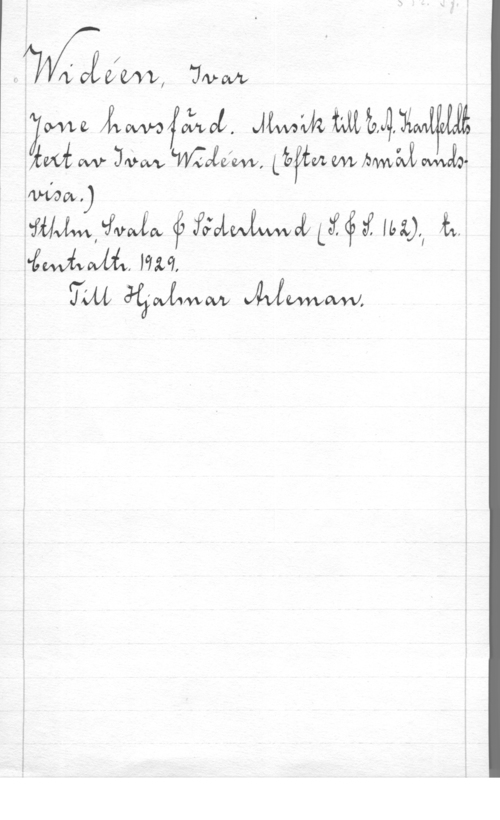 Widéen, Ivar
Jone havsfärd. Musik till E. A. Karlfeldts
text av Ivar Widéen. (Efter en småländs-
visa.)
Sthlm, Svala & Söderlund (S. & S. 162), tr.
Centraltr. 1929.
Till Hjalmar Arleman.